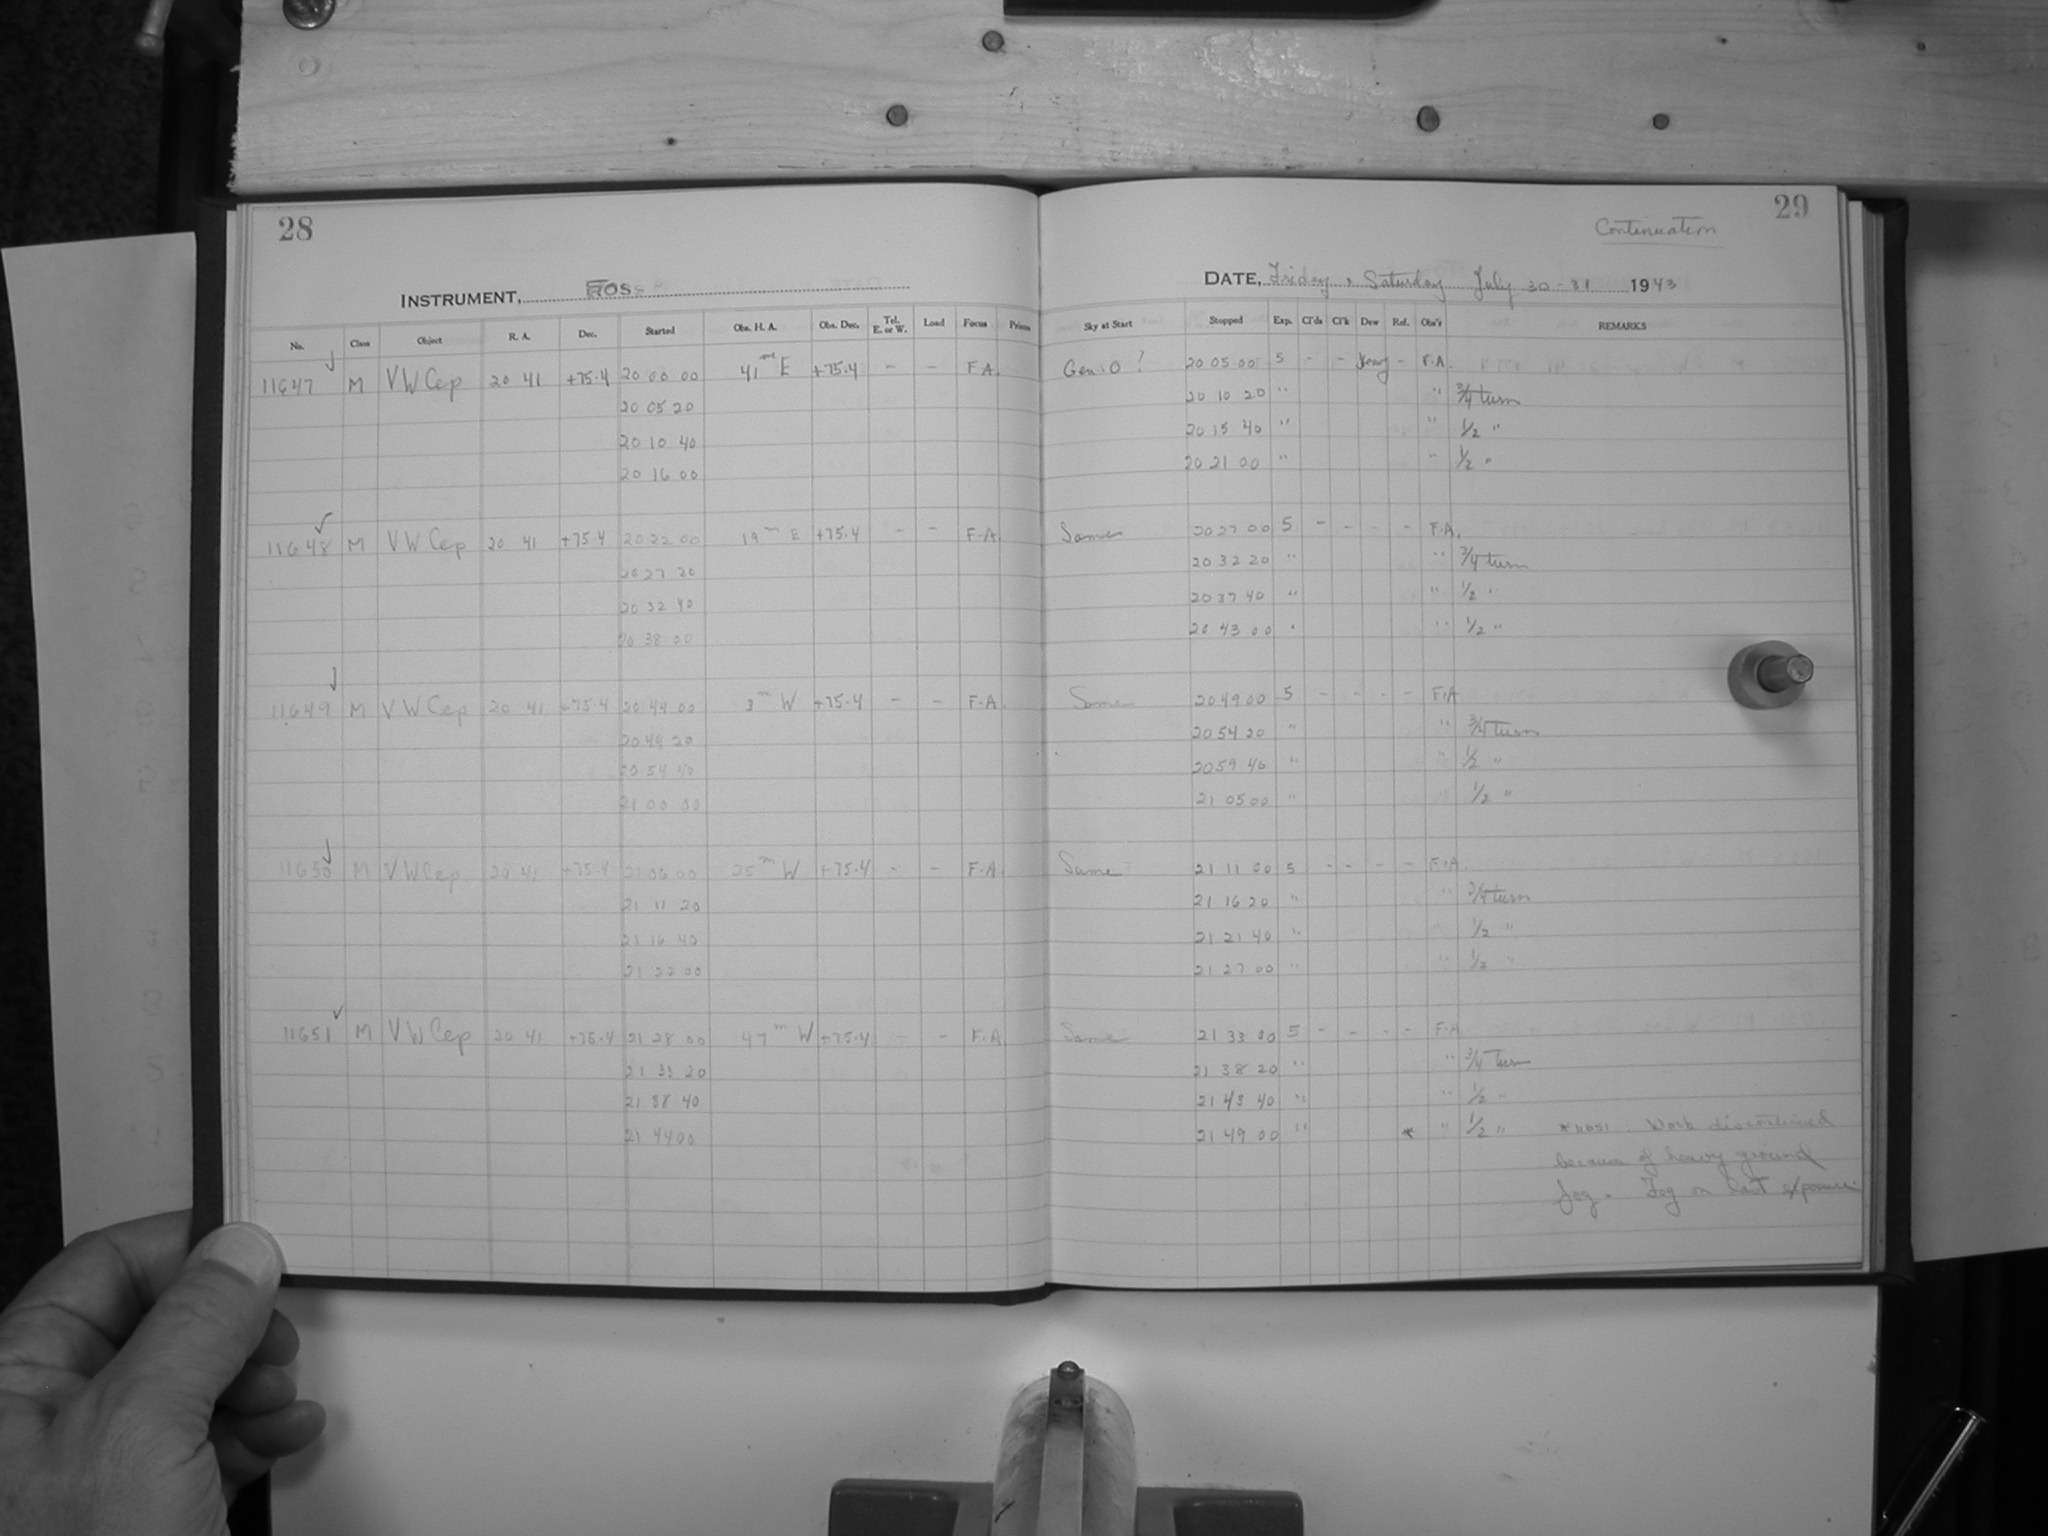 28
29
Continuation
INSTRUMENT, ROSS
DATE, Friday, Saturday July 30-31 1943
No. Class Object R. A. Dec. Started Obs. H. A. Obs. Dec. Tel. E. or W. Load Focus Prism Sky at Start Stopped Exp. Cl'ds Cl'k Dew Rel. Obs'r REMARKS
11647 M VW Cep 20 41 +75.4 20 00 00 41m E +75.4 - - F.A. Gen. 0 ? 20 05 00 5 - - Heavy - F.A.
20 05 20 20 10 20 " " 3/4 turn
20 10 40 20 15 40 " " 1/2 "
20 16 00 20 21 00 " " 1/2 "
11648 M VW Cep 20 41 +75.4 20 22 00 19m E +75.4 - - F.A. Same 20 27 00 5 - - - - F.A.
20 27 20 20 32 20 " " 3/4 turn
20 32 40 20 37 40 " " 1/2 "
20 38 00 20 43 00 " " 1/2 "
11649 M VW Cep 20 41 +75.4 20 44 00 3m W +75.4 - - F.A. Same 20 49 00 5 - - - - F.A
20 49 20 20 54 20 " " 3/4 turn
20 54 40 20 59 40 " " 1/2 "
21 00 00 21 05 00 " " 1/2 "
11650 M VW Cep 20 41 +75.4 21 06 00 25m W +75.4 - - F.A. Same 21 11 00 5 - - - - F.A.
21 11 20 21 16 20 " " 3/4 turn
21 16 40 21 21 40 " " 1/2 "
21 22 00 21 27 00 " " 1/2 "
11651 M VW Cep 20 41 +75.4 21 28 00 47m W +75.4 - - F.A. Same 21 33 00 5 - - - - F.A.
21 33 20 21 38 20 " " 3/4 turn
21 38 40 21 43 40 " " 1/2 "
21 44 00 21 49 00 " * " 1/2 " * 11651. Work discontinued
because of heavy ground
fog. Fog on last exposure